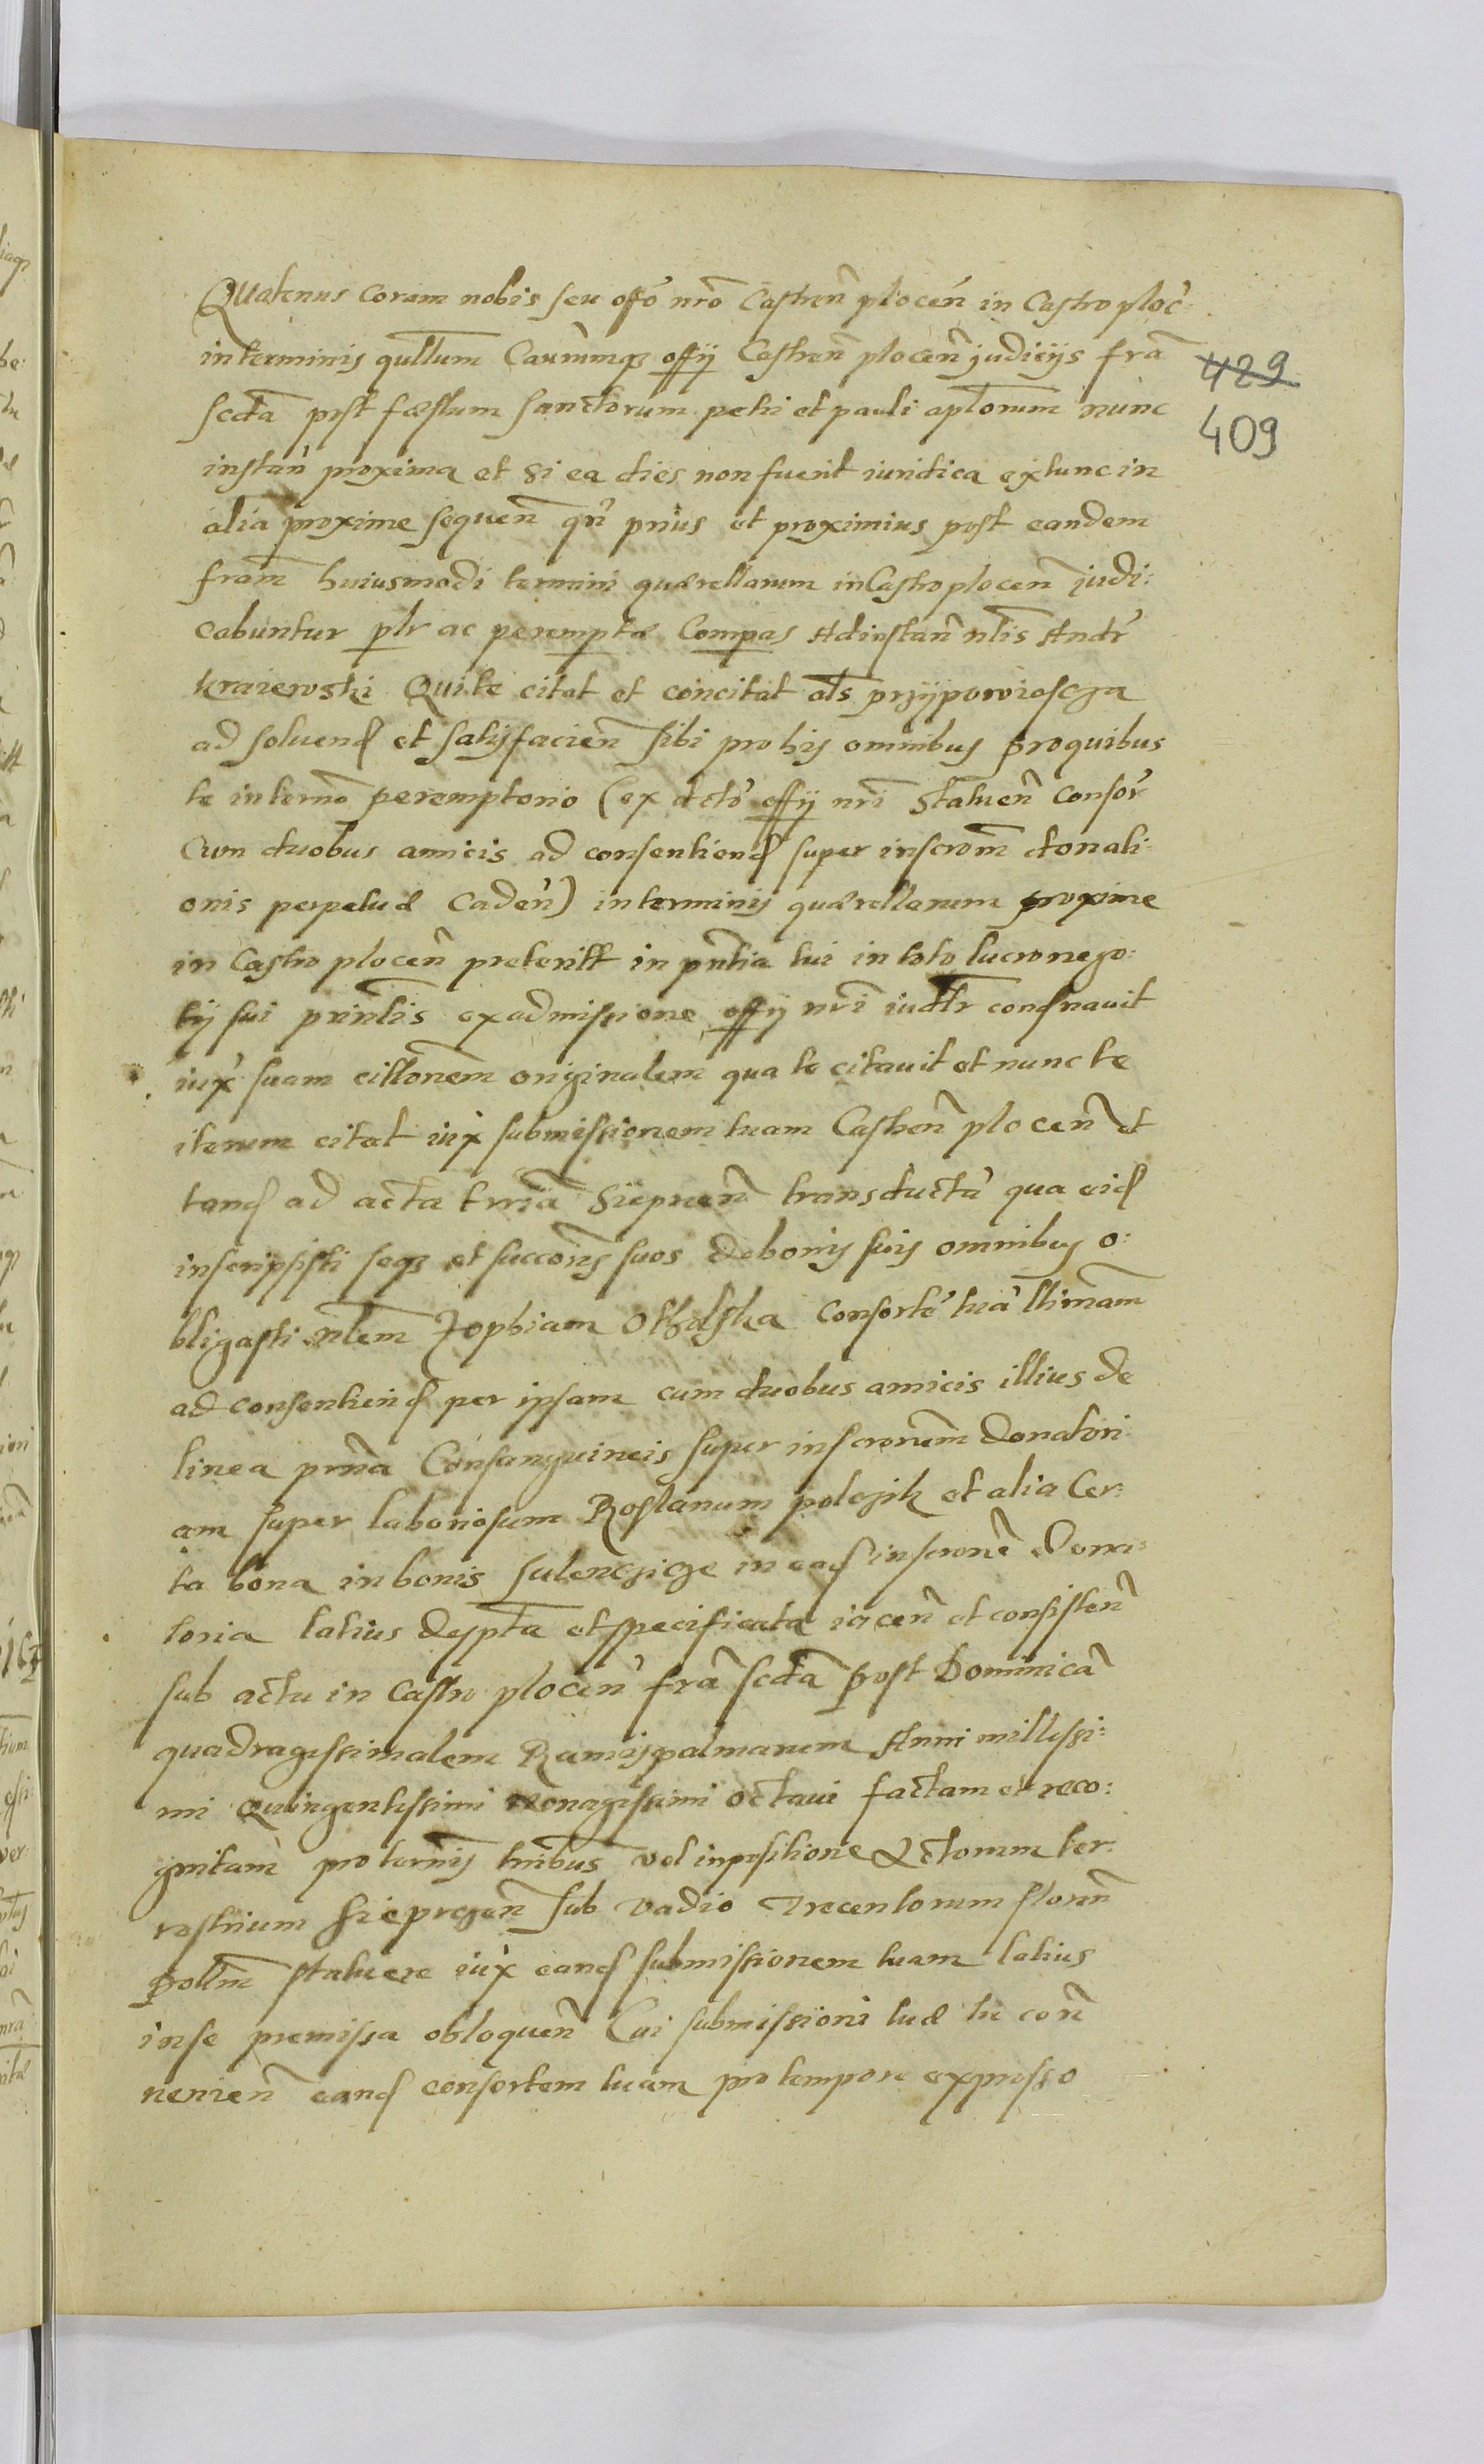 Quatenus coram nobis seu offõ nrõ Castren̄ plocen̄ in Castro ploc:
in terminis qu̅llum Carumqꝫ offÿ Castren̄ plocen̄ judicÿs frã
scdã post fæstum sanctorum petri et pauli aplorum nunc
instan̄ proxima et si ea dies non fuerit iuridica extunc in
alia proxime sequen̄ qñ prius et proximius post eandem
fram̄ huiusmodi termini quærellarum in Castro plocen̄ judi:
cabuntur plr ac peremptæ Compas Ad instan̄ nl̄is Andr̄
Kraiewski Qui te citat et concitat als przÿpowiescza
ad soluend et satisfacien̄ sibi pro his omnibus pro quibus
te in termõ peremptorio (ex dctõ offÿ nr̄i statuen̄ consor̄
Cum duobus amicis ad consentiend super inscrom̄ donati:
onis perpetuæ Caden̄) in terminis quærellarum proxime
in Castro plocen̄ preterit in pn̄tia tui in toto lucro nego:
tÿ sui prin̄lis ex admissione offÿ nr̄i iudtr condnauit
iux suam cittonem̄ originalem qua te citauit et nunc te
iterum citat iux submissionem tuam Castren̄ plocen̄ et
tand ad acta trr̄ia Siepræn̄ transductã qua eid
inscripsisti seqꝫ et succon̄s suos de bonis suis omnibus o:
bligasti nl̄em Zophiam consortẽ tuã l̄timam̄
ad consentiend per ipsam cum duobus amicis illius de
linea prn̄a Consanguineis super inscronem̄ donatori
am super laboriosum Roslanum et alia Cer:
ta bona in bonis Sulenczicze in ead inscronẽ Dona:
toria latius desptã et specificata iacen̄ et consisten̄
sub actu in Castro plocen̄ frã scdã post Dominicã
quadragessimalem Ramispalmarum Anni millessi:
mi Quingentissimi Nonagissimi octaui factam et reco:
gnitam pro ternis tnibus vel in positione Actorum ter:
restrium Sieprczen̄ sub vadio Trecentorum floren̄
pollm̄ statuere iux eand submissionem tuam latius
in se premissa obloquen̄ Cui submissioni tuæ tu con̄
uenien̄ eand consortem tuam pro tempore expresso
429
409